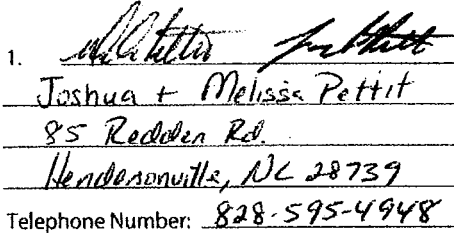 1.
Joshua + Melissa Pettit
85 Redden Rd.
Hendersonville, NC 28739
Telephone Number: 828-595-4948